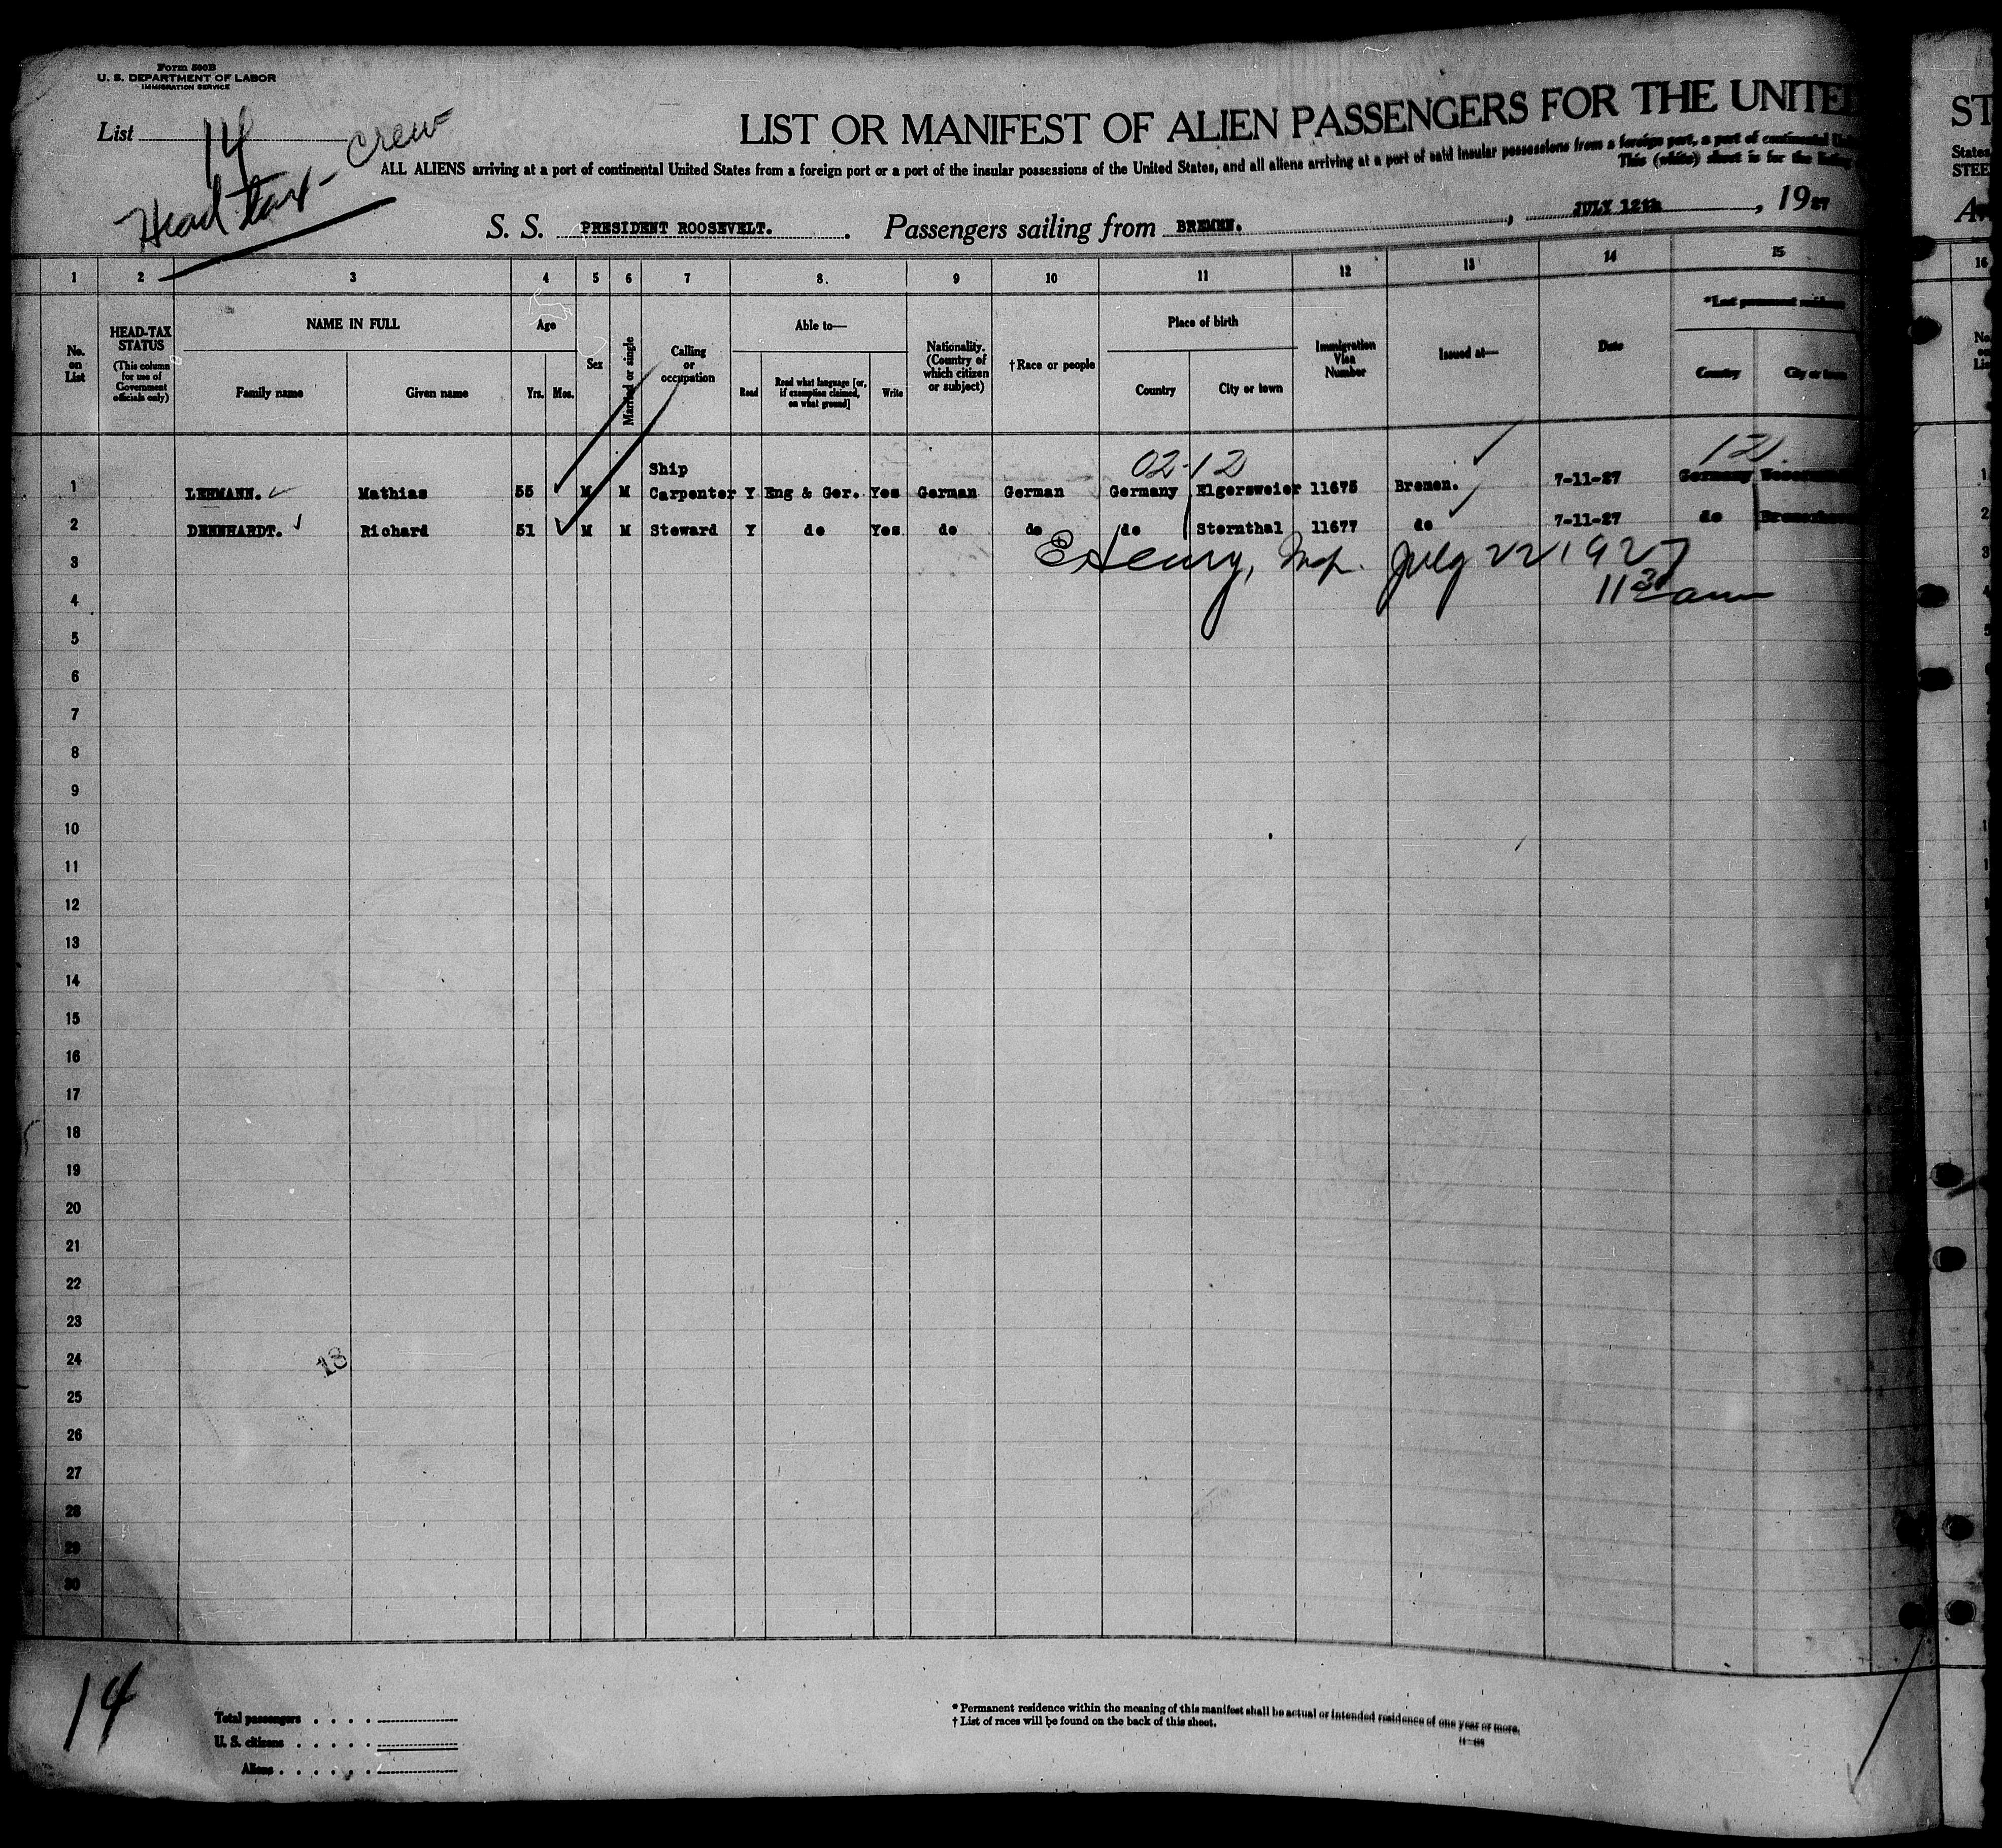 Form 500B
U. S. DEPARTMENT OF LABOR
IMMIGRATION SERVICE
List 14
Head tax - crew
LIST OR MANIFEST OF ALIEN PASSENGERS FOR THE UNITED
ALL ALIENS arriving at a port of continental United States from a foreign port or a port of the insular possessions of the United States, and all aliens arriving at a port of said insular possessions from a foreign port, a port of continental
This (white) sheet is for the listing
S. S. PRESIDENT ROOSEVELT. Passengers sailing from BREMEN. , JULY 12th , 1927
1 2 3 4 5 6 7 8. 9 10 11 12 13 14 15
No. on List
HEAD-TAX STATUS
(This column for use of Government officials only)
NAME IN FULL
Family name Given name
Age
Yrs. Mos.
Sex
Married or single
Calling or occupation
Able to—
Read Read what language [or, if exemption claimed, on what ground] Write
Nationality. (Country of which citizen or subject)
†Race or people
Place of birth
Country City or town
Immigration Visa Number
Issued at—
Date
*Last permanent residence
Country City or town
02-12
1 LEHMANN. Mathias 55 M M Ship Carpenter Y Eng & Ger. Yes German German Germany Elgersweier 11675 Bremen. 7-11-27 Germany
2 DENNHARDT. Richard 51 M M Steward Y do Yes do do do Sternthal 11677 do 7-11-27 do
July 22 1927
11 30 am
3
4
5
6
7
8
9
10
11
12
13
14
15
16
17
18
19
20
21
22
23
24
25
26
27
28
29
30
18
14
Total passengers
U. S. citizens
Aliens
* Permanent residence within the meaning of this manifest shall be actual or intended residence of one year or more.
† List of races will be found on the back of this sheet.
ST
States
STEE
16